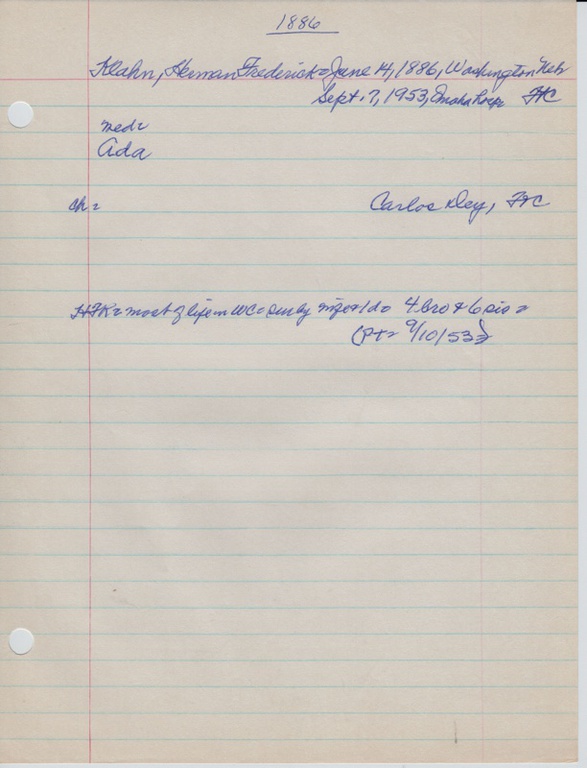 1886
Klahn, Herman Frederick = June 14, 1886, Washington Neb
Sept. 7, 1953, Omaha Hosp FC
med =
Ada
ch = Carlos Dey, FC
HFK = most of life in WC = sur by wife + 1 da 4 bro + 6 sis =
(PT = 9/10/53)